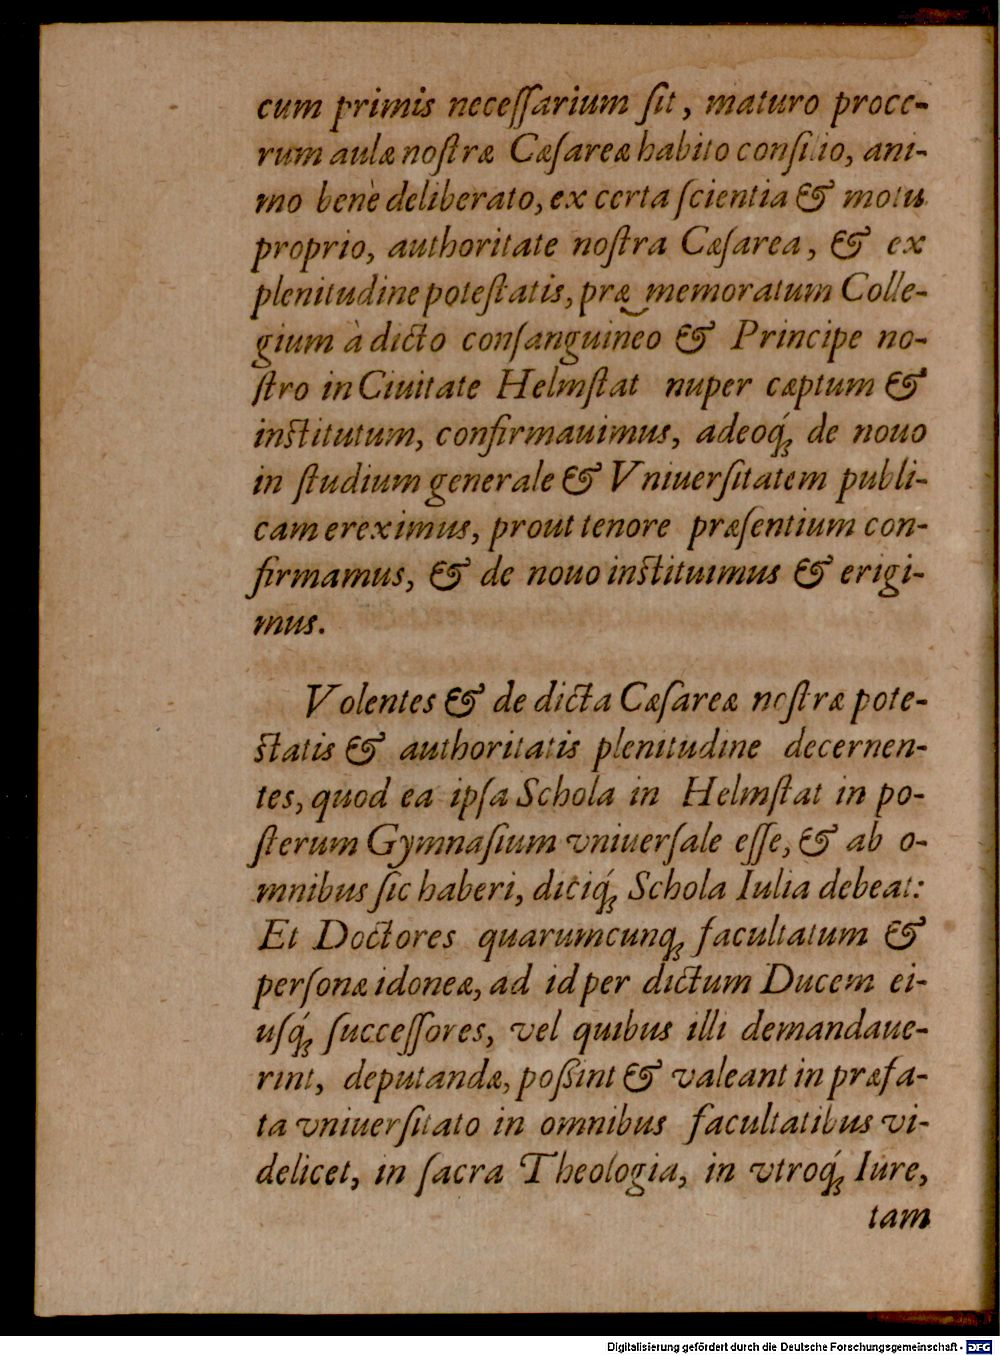 cum primis neceſſarium ſit, maturo proce-
rum aulæ noſtræ Cæſareæ habito conſilio, ani-
mo benè deliberato, ex certa ſcientia & motu
proprio, authoritate noſtra Cæſarea, & ex
plenitudine poteſtatis, præ‿memoratum Colle-
gium à dicto conſanguineo & Principe no-
ſtro in Ciuitate Helmſtat nuper cæptum &
inſtitutum, confirmauimus, adeoq́; de nouo
in ſtudium generale & Vniuerſitatem publi-
cam ereximus, prout tenore præſentium con-
firmamus, & de nouo inſtituimus & erigi-
mus.
Volentes & de dicta Cæſareæ noſtræ pote-
ſtatis & authoritatis plenitudine decernen-
tes, quod ea ipſa Schola in Helmſtat in po-
ſterum Gymnaſium vniuerſale eſſe, & ab o-
mnibus ſic haberi, diciq́; Schola Iulia debeat:
Et Doctores quarumcunq; facultatum &
perſonæ idoneæ, ad id per dictum Ducem ei-
uſq́; ſucceſſores, vel quibus illi demandaue-
rint, deputandæ, poßint & valeant in præfa-
ta vniuerſitato in omnibus facultatibus vi-
delicet, in ſacra Theologia, in vtroq́; Iure,
tam
Digitalisierung gefördert durch die Deutsche Forschungsgemeinschaft - DFG